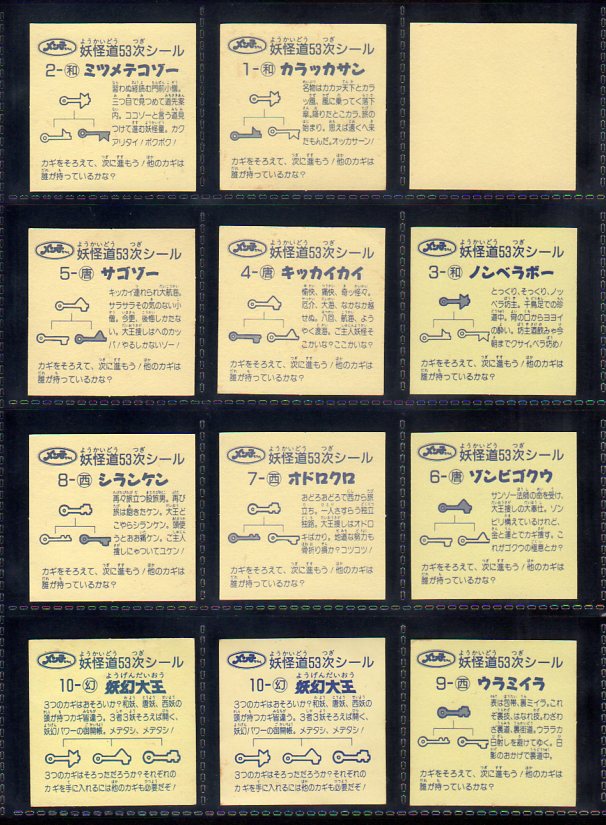 メンチ
妖怪道53次シール
ようかいどう つぎ
2-和 ミツメテコゾー
習わぬ経読む門前小僧。
三つ目で見つめて道先案
内。ココゾーと言う道見
つけて進む妖怪量。カク
アリタイ！ポクポク！
カギをそろえて、次に進もう！他のカギは
誰が持っているかな？
妖怪道53次シール
ようかいどう つぎ
1-和 カラッカサン
名物はカカァ天下とカラ
ッ風。風に乗って落下
傘。降りたとこカラ、旅の
始まり。思えば遠くへ来
たもんだ。オッカサーン！
カギをそろえて、次に進もう！他のカギは
誰が持っているかな？
妖怪道53次シール
ようかいどう つぎ
5-唐 サゴゾー
キッカイ連れられ大航海。
サラサラその気のない小
僧。今更、後悔しかたな
い。大王捜しはへのカッ
パ！やるしかないゾー！
カギをそろえて、次に進もう！他のカギは
誰が持っているかな？
妖怪道53次シール
ようかいどう つぎ
4-唐 キッカイカイ
愉快、痛快、奇ッ怪々。
厄介、大海、なかなか越
せぬ。八回、航海、よう
やく渡海。ご主人妖怪そ
こかいな？ここかいな？
カギをそろえて、次に進もう！他のカギは
誰が持っているかな？
妖怪道53次シール
ようかいどう つぎ
3-和 ノンベラボー
とっくり、そっくり、ノッ
ペラ坊主。千鳥足での帰
道中。背の口からヨヨイ
の酔い。坊主酒飲みゃ今
朝までクサイ、ベラ坊め！
カギをそろえて、次に進もう！他のカギは
誰が持っているかな？
妖怪道53次シール
ようかいどう つぎ
8-西 シランケン
再々旅立つ股旅男。再び
旅は飽きたケン。大王ど
こやらシランケン。頭使
うとおお痛ケン。ご主人
捜しにゃついてユケン！
カギをそろえて、次に進もう！他のカギは
誰が持っているかな？
妖怪道53次シール
ようかいどう つぎ
7-西 オドロクロ
おどろおどろで西から旅
立ち。一人さすらう独
独路。大王捜しはオドロ
キばかり。地道な努力も
骨折り損か？コツコツ！
カギをそろえて、次に進もう！他のカギは
誰が持っているかな？
妖怪道53次シール
ようかいどう つぎ
6-唐 ゾンビゴクウ
サンゾー法師の命を受け、
大王捜しの大暴仕。ゾン
ビリ構えているけれど、
金と運とでカギ捜す。こ
れがゴクウの極意とか？
カギをそろえて、次に進もう！他のカギは
誰が持っているかな？
妖怪道53次シール
ようかいどう つぎ
ようげんだいおう
10-幻 妖幻大王
3つのカギはおそろいか？和妖、唐妖、西妖の
頭が持つカギ皆違う。3者3妖そろえば開く、
妖幻パワーの御開帳。メデタシ、メデタシ！
3つのカギはそろっただろうか？それぞれの
カギを手に入れるには他のカギも必要だぞ！
妖怪道53次シール
ようかいどう つぎ
ようげんだいおう
10-幻 妖幻大王
3つのカギはおそろいか？和妖、唐妖、西妖の
頭が持つカギ皆違う。3者3妖そろえば開く、
妖幻パワーの御開帳。メデタシ、メデタシ！
3つのカギはそろっただろうか？それぞれの
カギを手に入れるには他のカギも必要だぞ！
妖怪道53次シール
ようかいどう つぎ
9-西 ウラミイラ
表は包帯、裏ミイラ。これ
ぞ裏技、はなれ技。わざわ
ざ裏道、裏街道。ウララカ
日射しを避けてゆく。日
影のおかげで裏道中。
カギをそろえて、次に進もう！他のカギは
誰が持っているかな？